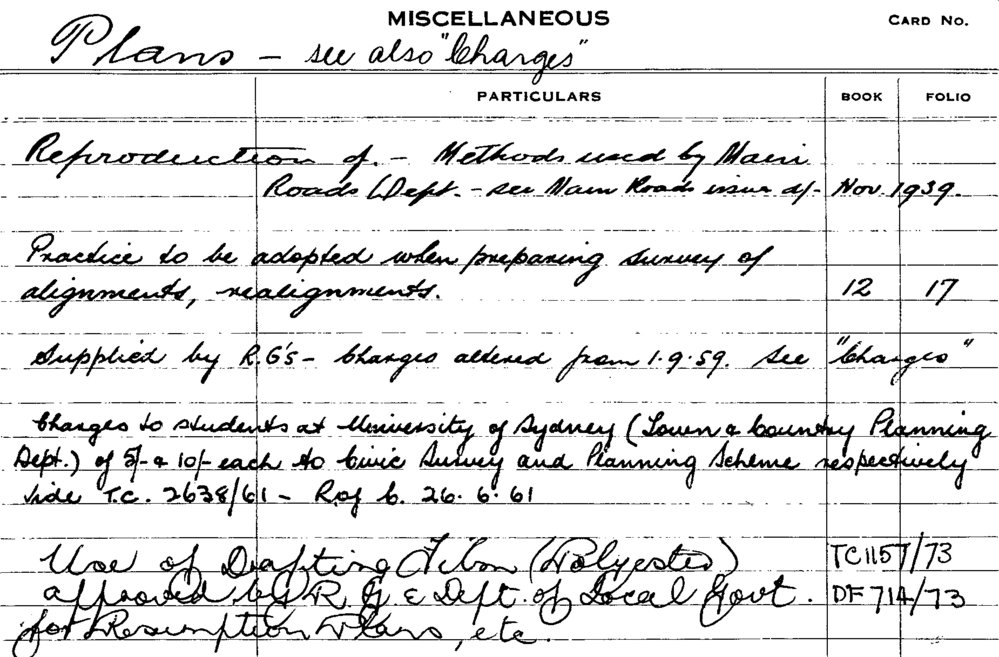 MISCELLANEOUS CARD No.
Plans – see also "Charges"
PARTICULARS BOOK FOLIO
Reproduction of. – Methods used by Main
Roads Dept. – see Main Roads issue of/- Nov. 1939.
Practice to be adopted when preparing survey of
alignments, realignments. 12 17
Supplied by R.G's – Charges altered from 1.9.59. See "Charges"
Charges to students at University of Sydney (Town & Country Planning
Dept.) of 5/- & 10/- each to Civic Survey and Planning Scheme respectively
vide T.C. 2638/61 – R of C. 26.6.61
Use of Drafting Film (Polyester) TC1157/73
approved by R G & Dept. of Local Govt. DF 714/73
for Resumption Plans, etc.